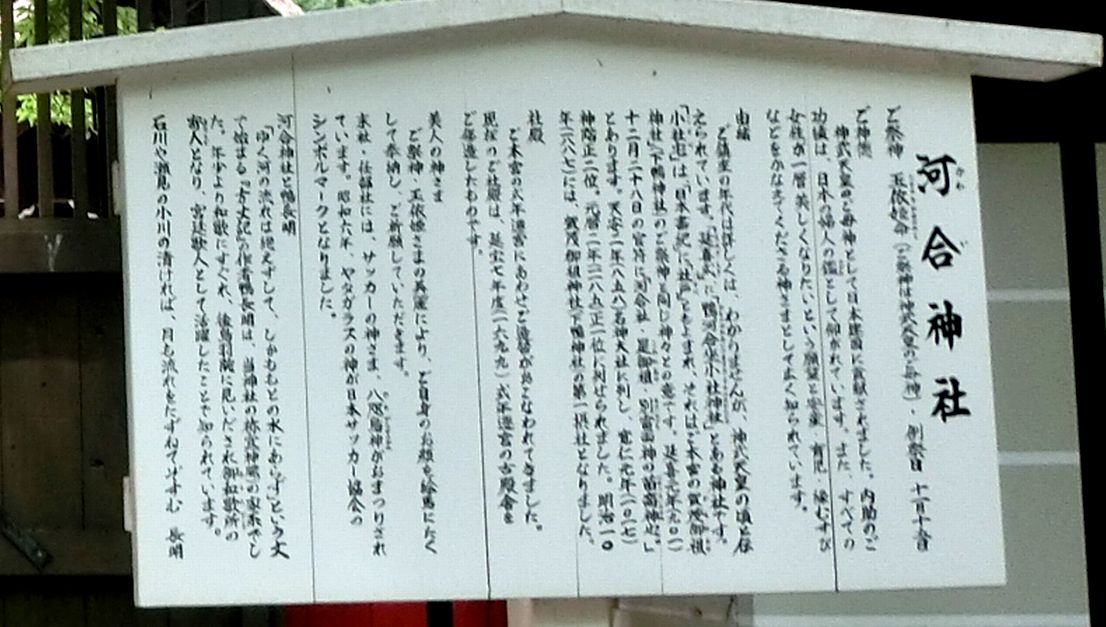 河合神社
ご祭神 玉依姫命(ご祭神は神武天皇のご母神)・例祭日 十一月十五日
ご神徳
神武天皇のご母神として日本建国に貢献されました。内助のご
功徳は、日本の婦人の鑑として仰がれています。また、すべての
女性が一層美しくなりたいという願望と安産、育児、縁むすび
などをかなえてくださる神さまとしてよく知られています。
由緒
ご鎮座の年代は詳しくは、わかりませんが、神武天皇の頃と伝
えられています。『延喜式』に「鴨河合坐小社神社」とある神社です。
「小社宅」は『日本書紀』に「社戸」とよまれ、それはご本宮の賀茂御祖
神社(下鴨神社)のご祭神と同じ神々との意です。延喜元年(九〇一)
十二月二十八日の官符に「河合社・是御祖・別雷両神の苗裔神社。」
とあります。天安二年(八五八)名神大社に列し、寛仁元年(一〇一七)
神階正二位。元暦二年(一一八五)正一位に列せられました。明治一〇
年(一八七七)には、賀茂御祖神社(下鴨神社)の第一摂社となりました。
社殿
ご本宮の式年遷宮にあわせご造営がおこなわれてきました。
現在のご社殿は、延宝七年度(一六七九)式年遷宮の古殿舎を
ご修造したものです。
美人の神さま
ご祭神、玉依姫さまの美麗により、ご自身のお顔を絵馬にかく
して奉納し、ご祈願していただきます。
末社・任部社には、サッカーの神さま、八咫烏神がおまつりされ
ています。昭和六年、ヤタガラスの神が日本サッカー協会の
シンボルマークとなりました。
河合神社と鴨長明
「ゆく河の流れは絶えずして、しかももとの水にあらず」という文
で始まる『方丈記』の作者鴨長明は、当神社の祢宜神職の家系でし
た。年少より和歌にすぐれ、後鳥羽院に見いだされ御和歌所の
寄人となり、宮廷歌人として活躍したことで知られています。
石川や瀬見の小川の清ければ、月も流れをたずねてぞすむ 長明